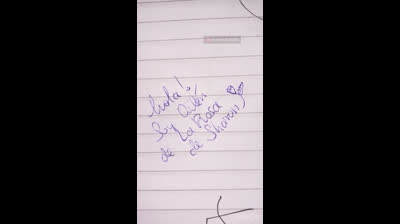 Hola!
Soy Ailén
de La Rosa
de Sharon